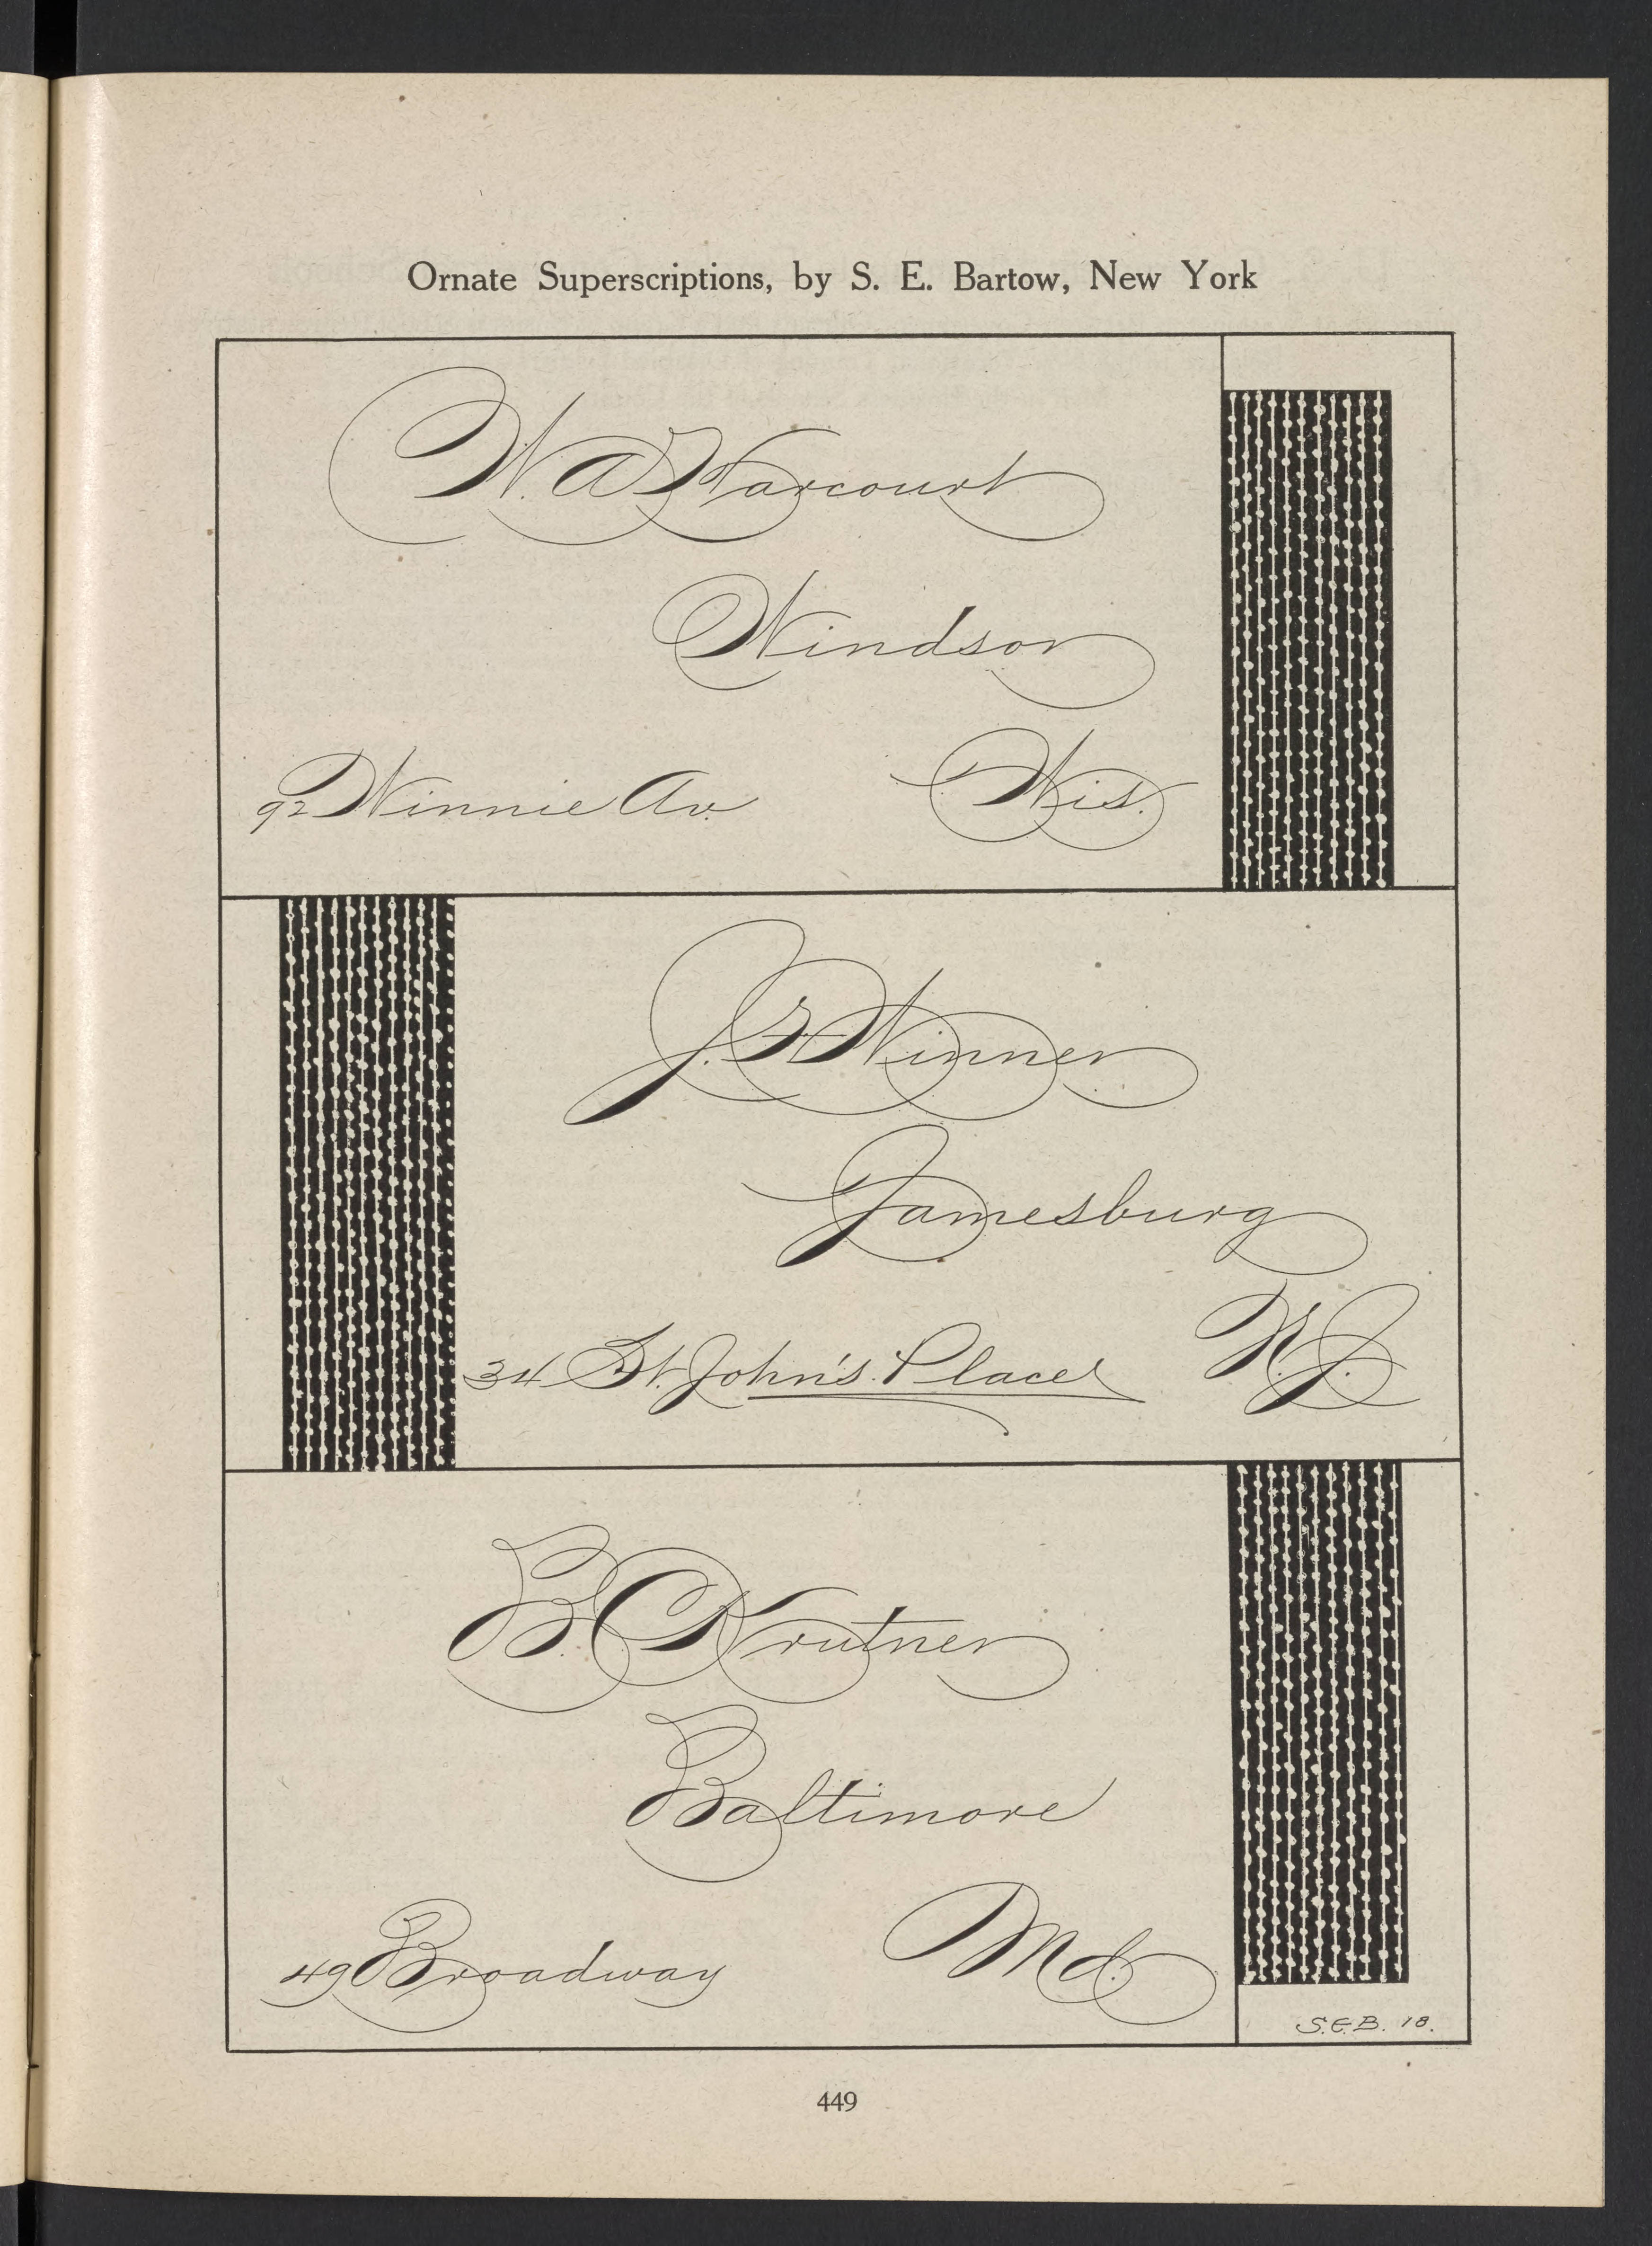 Ornate Superscriptions, by S. E. Bartow, New York
W. A. Harcourt
Windsor
92 Winnie Av. Wis.
J. S. Winner
Jamesburg
34 St. John's Place N.J.
B. C. Krutner
Baltimore
49 Broadway Md.
S.E.B. 18.
449